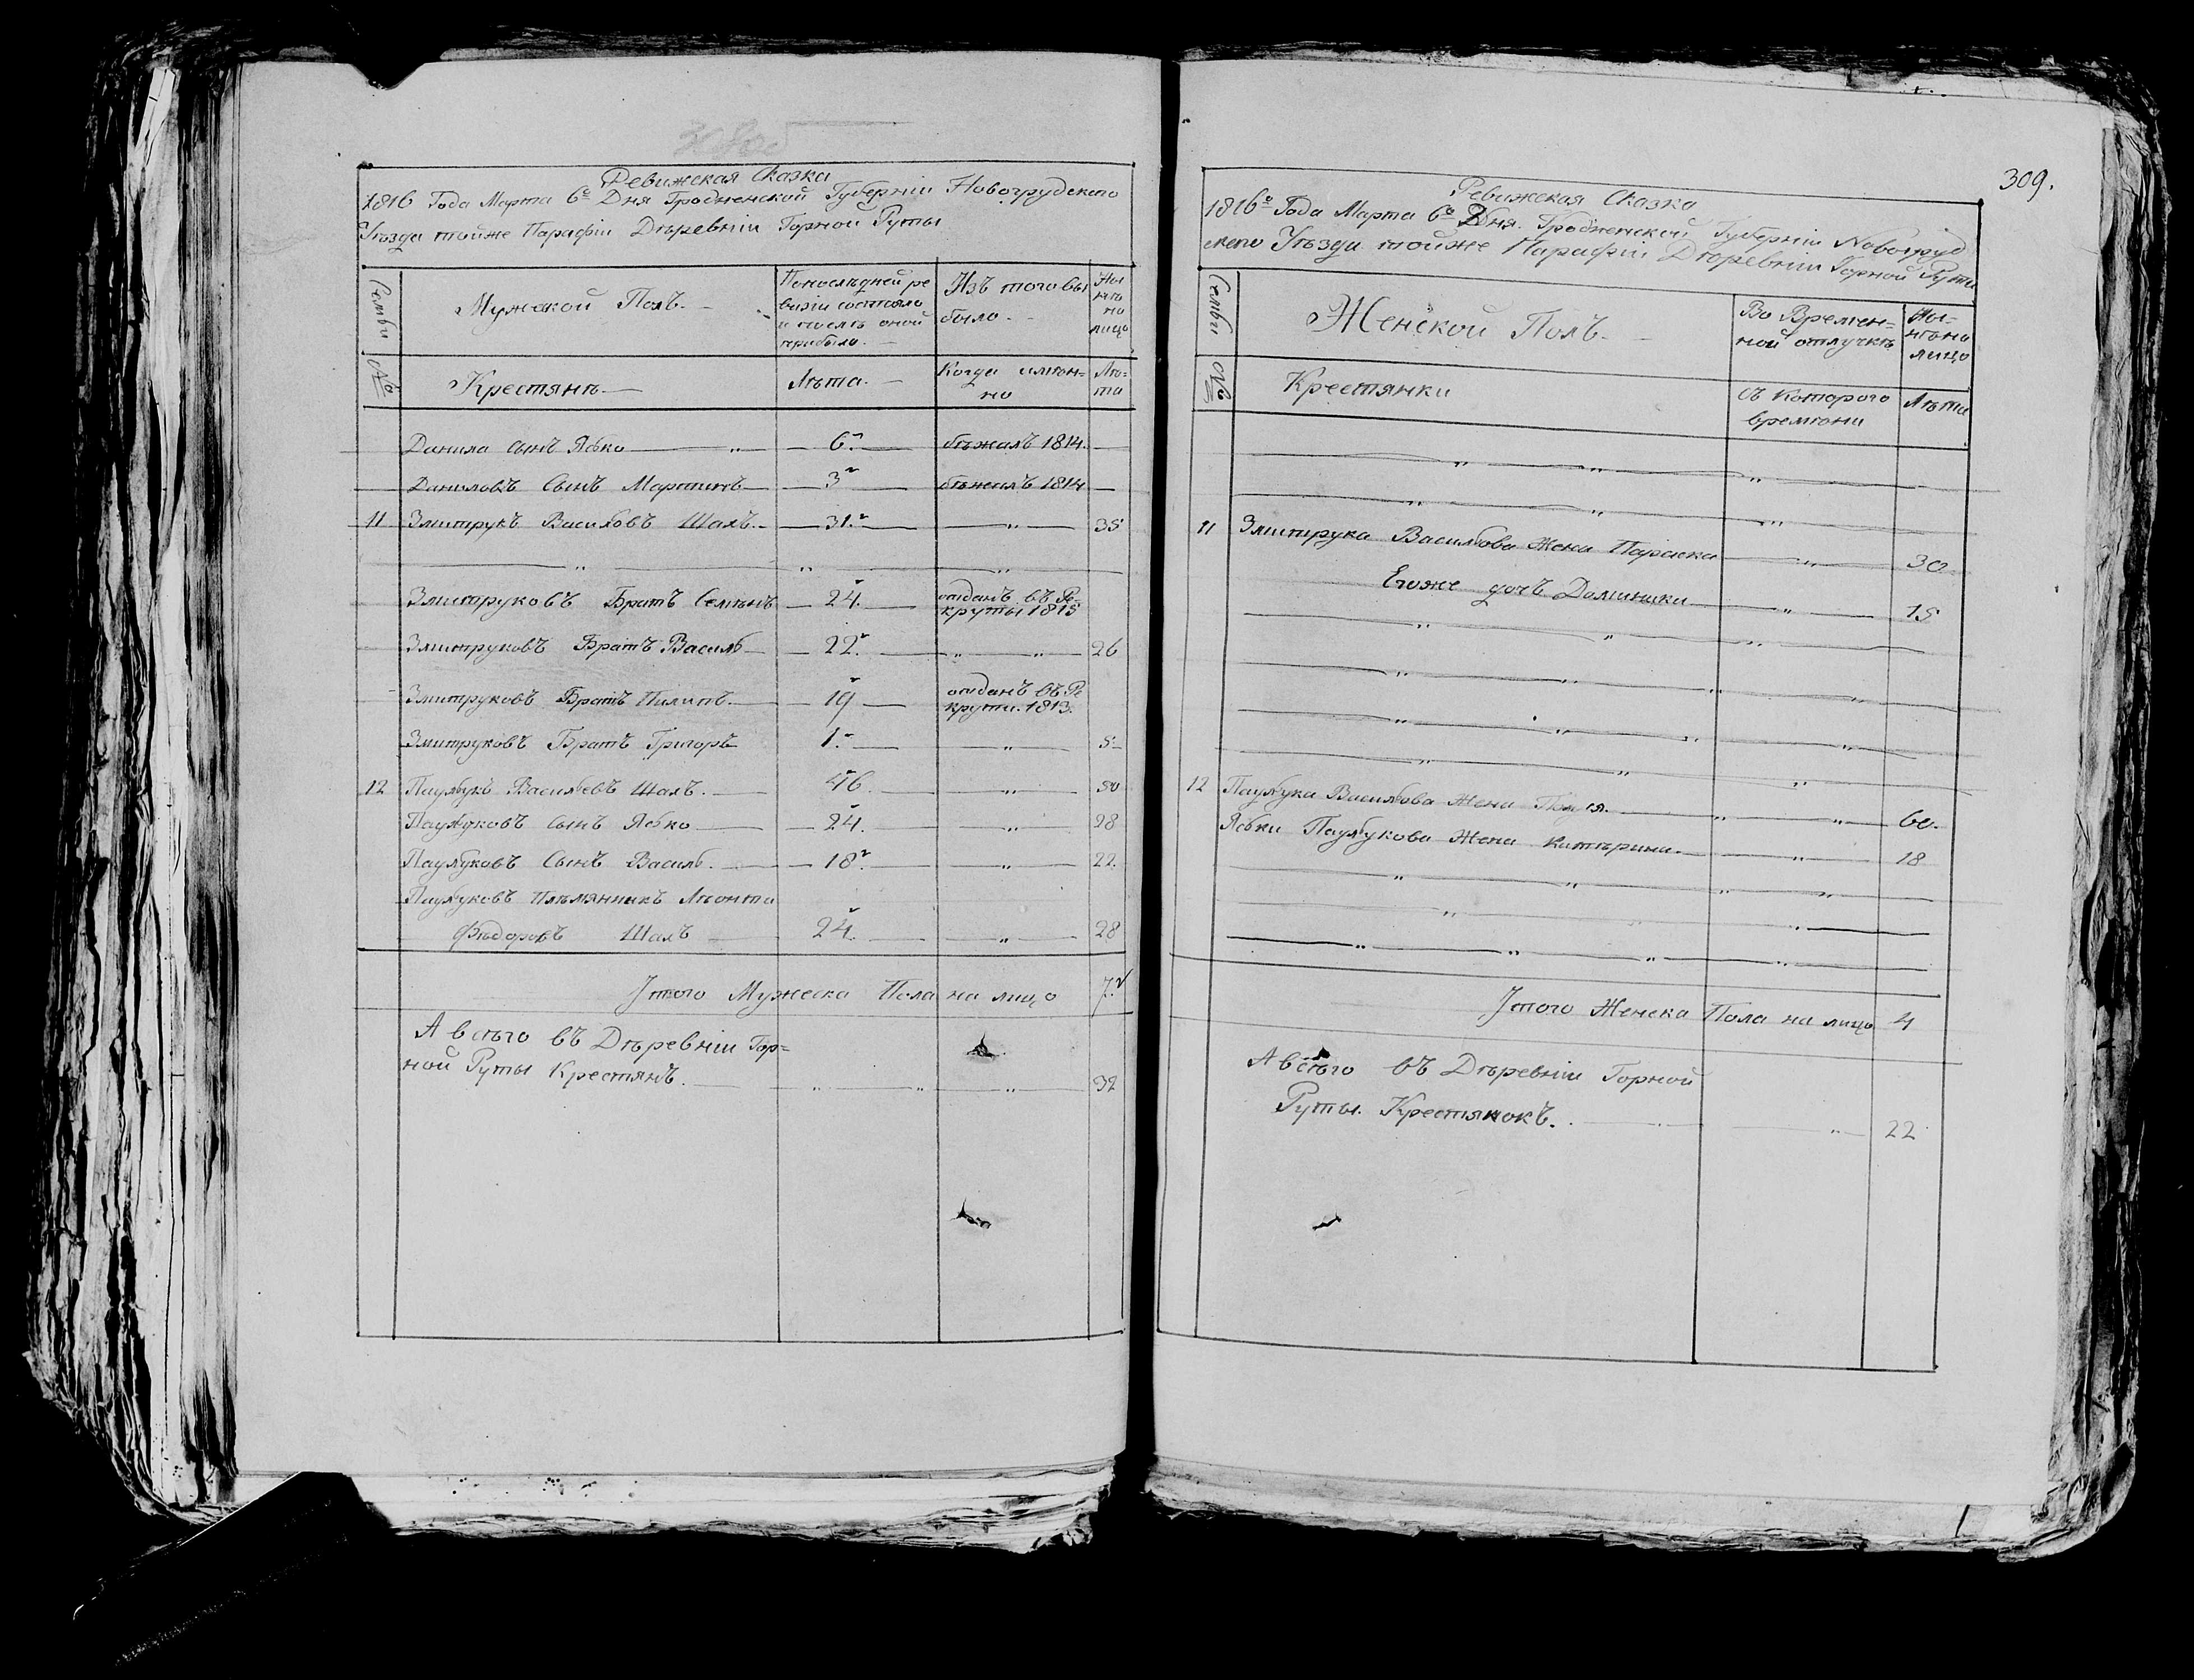 309.
Ревижская Сказка
1816 Года Марта 6го Дня Гродненской Губерніи Новогрудского
Уѣзда тойже Парафіи Дѣревніи Горной Руты
Семьи
Мужской Полъ.
Попослѣдней ре
визіи состояло
и послѣ оной
прибыло.
Изъ того вы
было.
Ны
нѣ
на
лицо
№
Крестянъ
Лѣта.
Когда имѣн=
но
Лѣ=
та
Данила сынъ Ясько — 6. — бѣжалъ 1814.
Даниловъ Сынъ Мартинъ — 3 — бѣжалъ 1814
11 Змитрукъ Васильовъ Шаль. — 31. — " — 35
Змитруковъ Братъ Семѣнъ — 24. — отданъ въ Ре
круты 1815
Змитруковъ Братъ Василь — 22. — " — " — 26
Змитруковъ Братъ Пилипъ. — 19 — отданъ въ Ре
круты. 1813.
Змитруковъ Братъ Григоръ 1. — " — 5
12 Паулюкъ Васильевъ Шаль. — 46. — " — 50
Паулюковъ Сынъ Ясько — 24. — " — 28
Паулюковъ Сынъ Василь. — 18. — " — 22.
Паулюковъ Плѣмянникъ Лѣонти
Фѣдоровъ Шаль — 24. — " — 28
Jтого Мужеска Пола на лицо 7.
А всѣго въ Дѣревніи Гор=
ной Руты Крестянъ. — " — " — " — 32
Ревижская Сказка
1816го Года Марта 6го Дня. Гродненской Губерніи Новогруд
ского Уѣзда тойже Парафіи Дѣревніи Горной Руты
Семьи
Женской Полъ.
Во Времен=
ной отлучкѣ
Ны=
нѣ на
лицо
№
Крестянки
съ Которого
времѣни
Лѣта
11 Змитрука Васильова Жена Параска — " — 30
Егоже дочъ Доминика — " — 15
12 Паулюка Васильова Жена — " — " — 60.
Яська Паулюкова Жена Катѣрина. — " — 18
Jтого Женска Пола на лицо 4
А всѣго въ Дѣревніи Горной
Руты. Крестянокъ. — " — 22